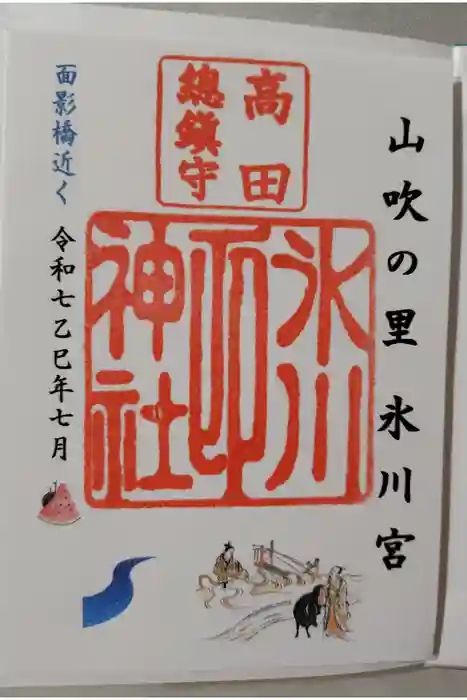 山吹の里 氷川宮
高田
總鎮守
氷川
印
神社
面影橋近く
令和七乙巳年七月